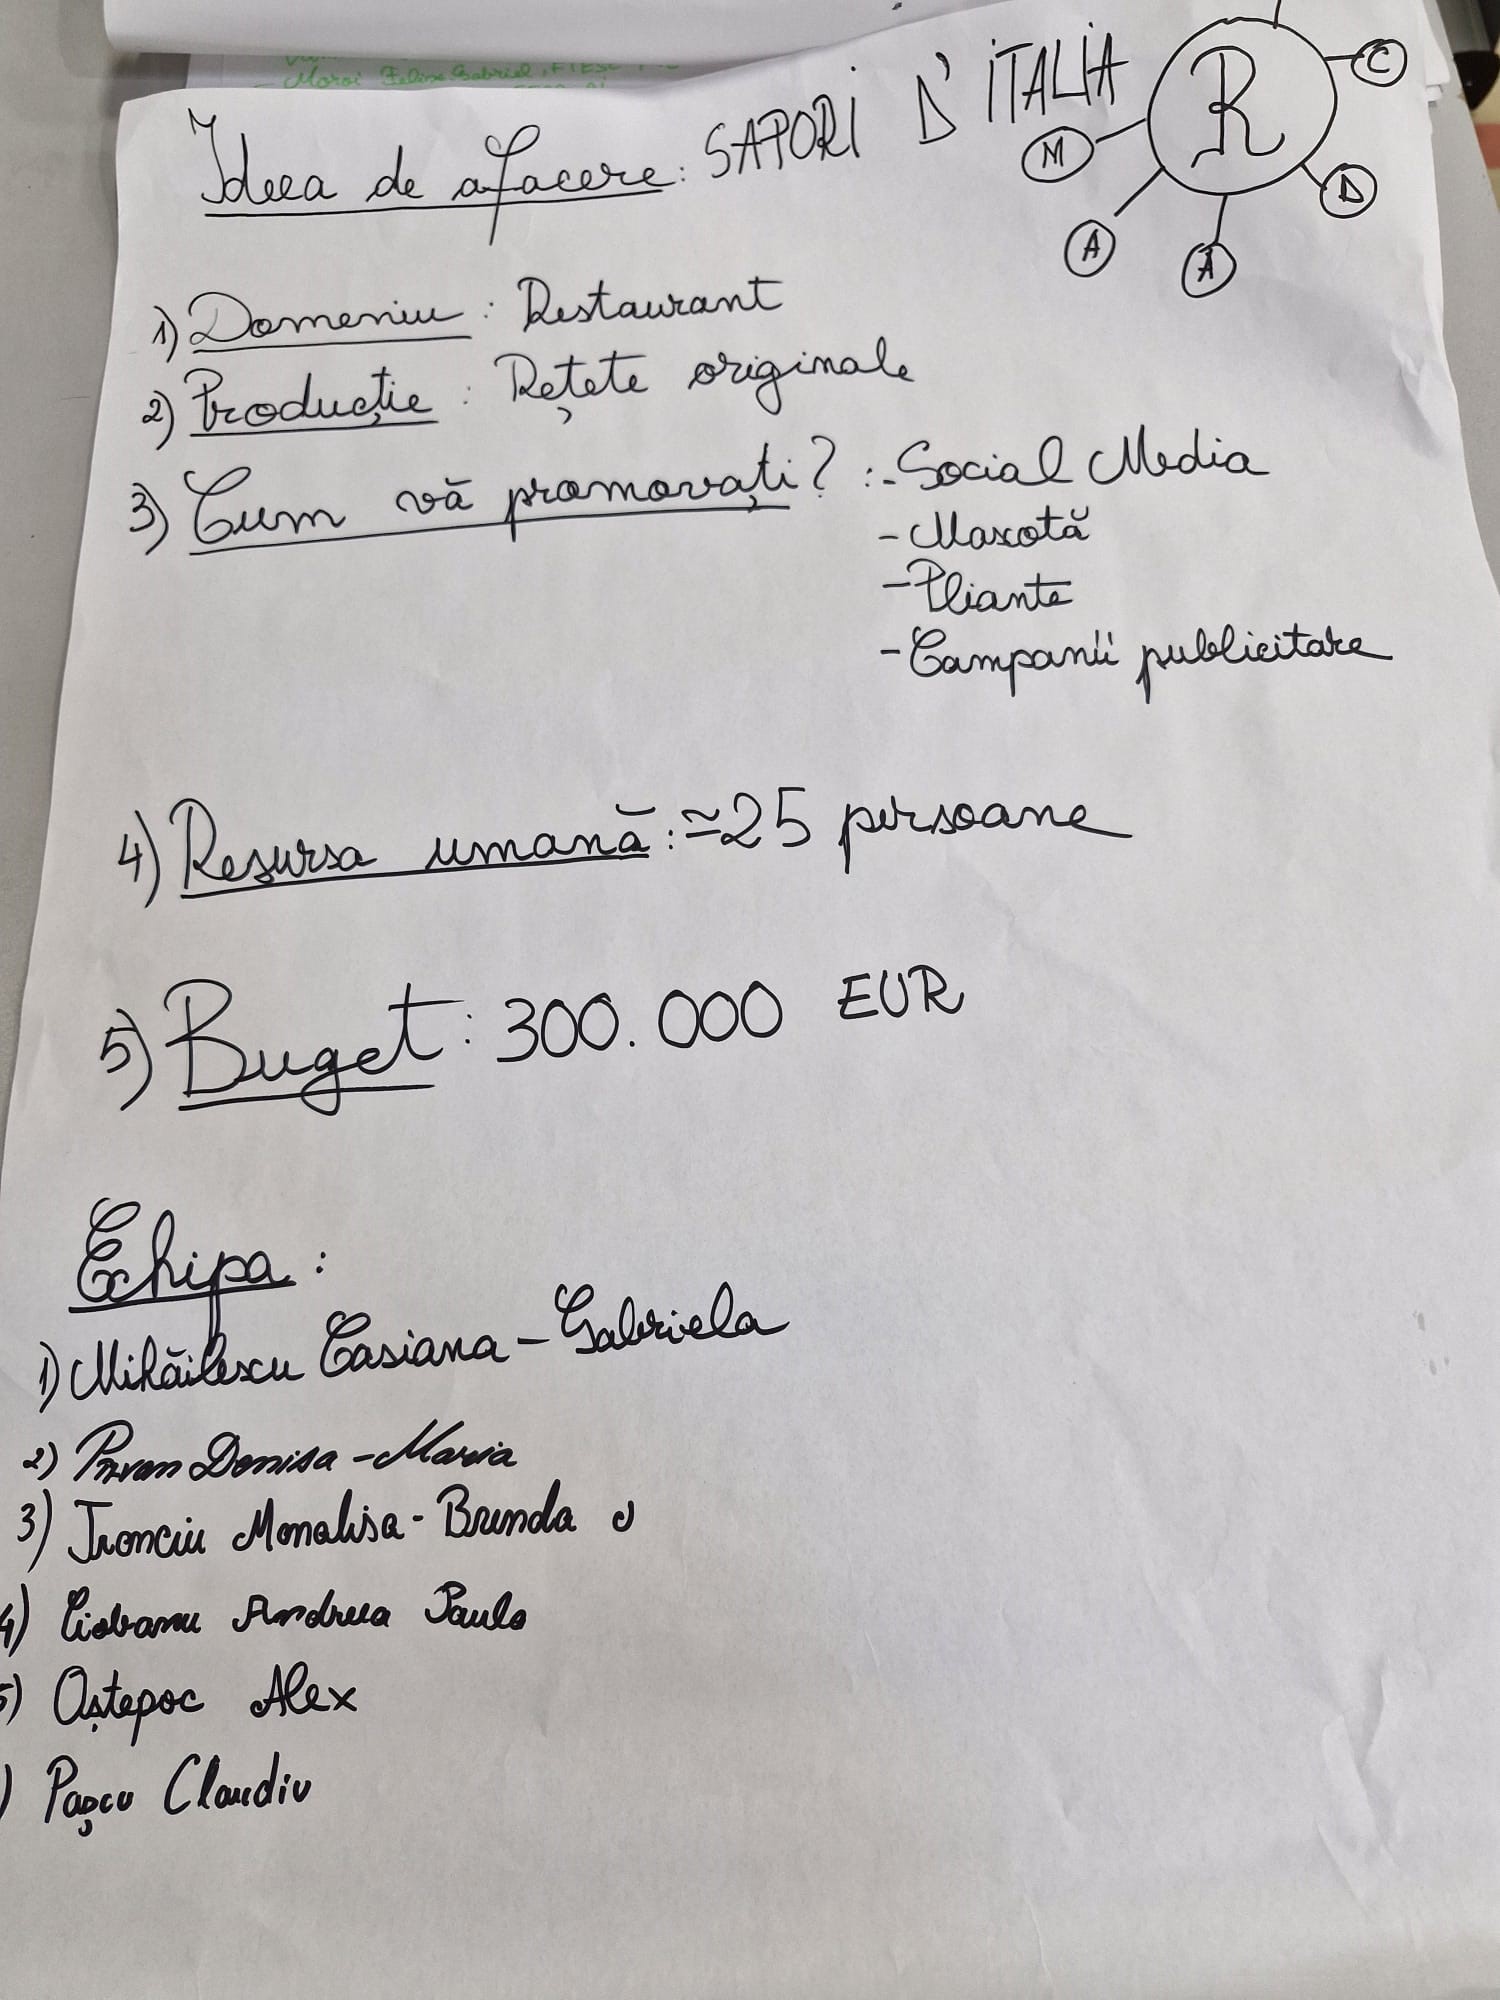 Moroi Felix Gabriel, FIESC
Ideea de afacere: SAPORI D'ITALIA
R
C
M
D
A
A
1) Domeniu : Restaurant
2) Producție : Rețete originale
3) Cum vă promovați? : - Social Media
- Mascotă
- Pliante
- Campanii publicitare
4) Resursa umană: ≃25 persoane
5) Buget: 300.000 EUR
Echipa :
1) Mihăilescu Casiana-Gabriela
2) Denisa-Maria
3) Tronciu Monalisa-Brenda
4) Ciobanu Andreea Paula
5) Oștepoc Alex
) Pașcu Claudiu